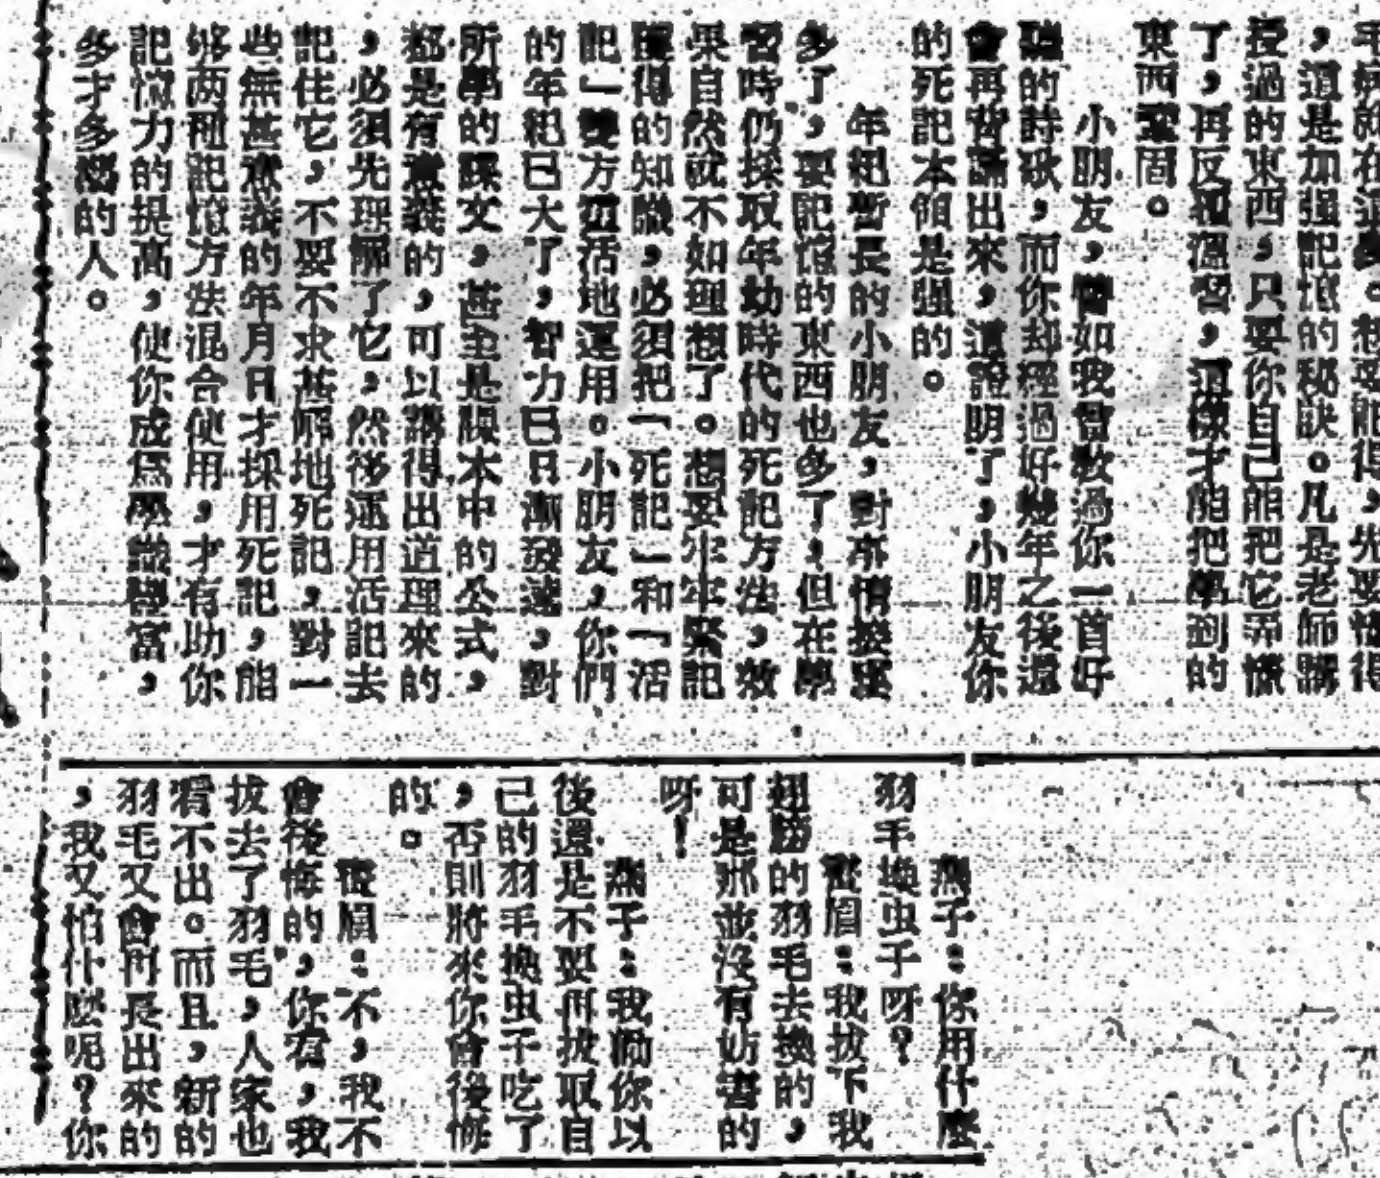 毛病就在這。想要記得,先要懂得
,這是加强記憶的秘訣。凡是老師講
授過的東西,只要你自己能把它弄懂
了,再反複溫習,這樣才能把學到的
東西鞏固。
小朋友,譬如我曾教過你一首好
聽的詩歌,而你却經過好幾年之後還
會再背誦出來,這證明了,小朋友你
的死記本領是强的。
年紀暫長的小朋友,對亦情接
多了,要記憶的東西也多了,但在學
習時仍採取年幼時代的死記方法,效
果自然就不如理想了。想要牢牢緊記
獲得的知識,必須把「死記」和「活
記」雙方靈活地運用。小朋友,你們
的年紀已大了,智力已日漸發達,對
所學的課文,甚至是課本中的公式,
都是有意義的,可以講得出道理來的
,必須先理解了它,然後運用活記去
記住它,不要不求甚解地死記,對一
些無甚意義的年月日才採用死記,能
够两種記憶方法混合使用,才有助你
記憶力的提高,使你成爲學識豐富,
多才多藝的人。
燕子:你用什麼
羽毛換虫子呀?
畫眉:我拔下我
翅膀的羽毛去換的,
可是那並沒有妨害的
呀!
燕子:我勸你以
後還是不要再拔取自
己的羽毛換虫子吃了
,否則將來你會後悔
的。
畫眉:不,我不
會後悔的,你看,我
拔去了羽毛,人家也
看不出。而且,新的
羽毛又會再長出來的
,我又怕什麼呢?你